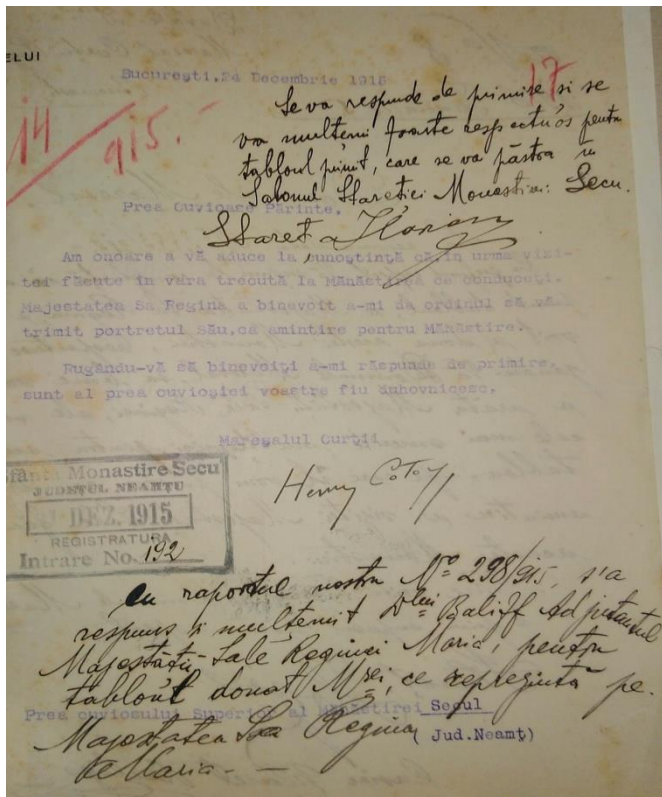 ELUI
București, 24 Decembrie 1915
14
915.-
17
Se va respunde de primire si se
va multemi foarte respectuos pentru
tabloul primit, care se va păstra in
Salonul Staretiei Monastirei Secu.
Prea Cuvioare Părinte,
Staret,
Am onoare a vă aduce la cunoștință că, în urma vizi-
tei făcute în vara trecută la Mănăstirea ce conduceți,
Majestatea Sa Regina a binevoit a-mi da ordinul să vă
trimit portretul Său, ca amintire pentru Mănăstire.
Rugându-vă să binevoiți a-mi răspunde de primire,
sunt al prea cuvioșiei voastre fiu duhovnicesc,
Mareșalul Curții
Sfânta Monastire Secu
JUDEȚUL NEAMȚU
DEZ. 1915
REGISTRATURA
Intrare No. 192
Henry Catargi
Cu raportul nostru No 298/915, s'a
respuns si multemit Dlui Baliff Adjutantul
Majestăței Sale Reginei Maria, pentru
tabloul donat Mrei, ce reprezintă pe
Prea cuviosului Superior al Mănăstirei Secul
Majestatea Sa Regina
(Jud. Neamț)
Maria.-